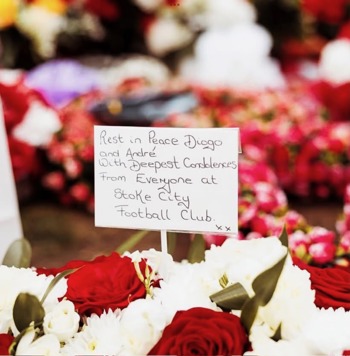 Rest in Peace Diogo
and André
With Deepest Condolences
From Everyone at
Stoke City
Football Club.
xx